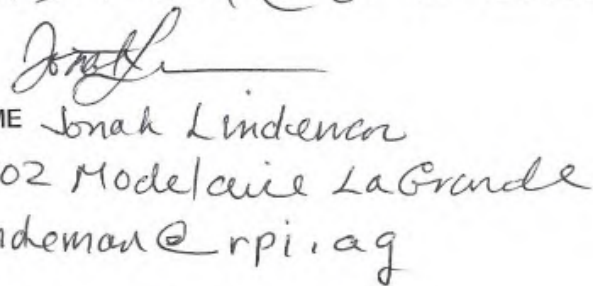 ME Jonah Lindeman
02 Modelaire LaGrande
ndeman@rpi.ag